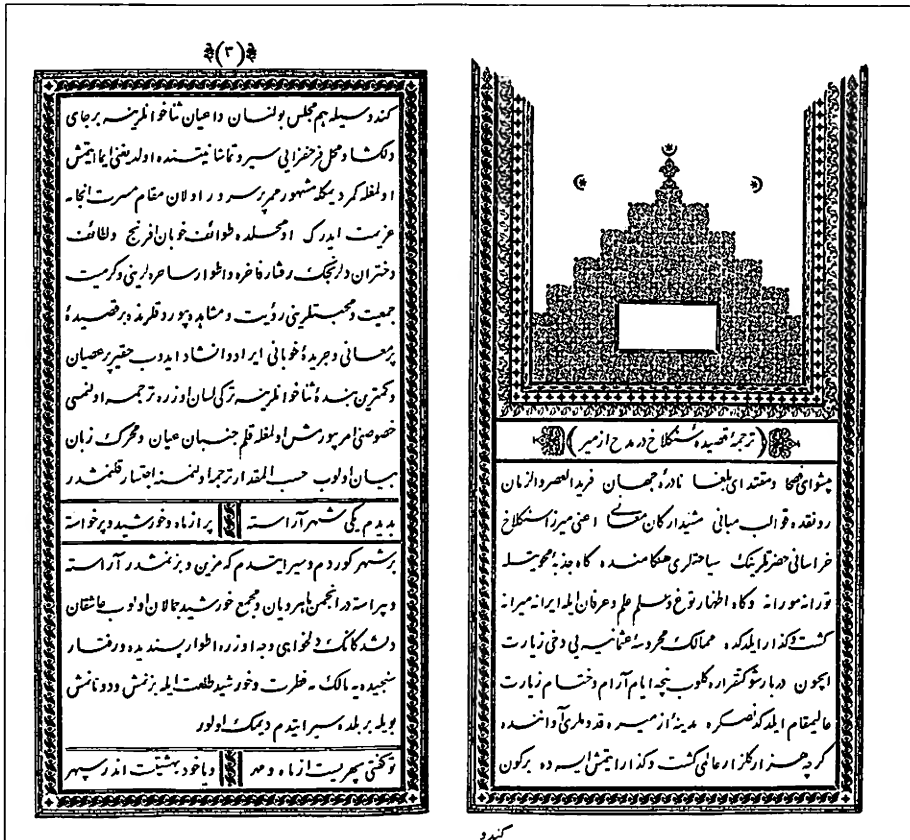 (ترجمهٔ قصیدهٔ سنکلاخ در مدح ازمیر)
پیشوای فصحا ومقتدای بلغا نادرهٔ جهان فرید العصر والزمان
رونقده قوالب مبانی مشیدارکان معانی اعنی میرزا سنکلاخ
خراسانی حضرتلرینک سیاحتلری هنکامنده کاه جذبهٔ محویتله
تورانه مورانه وکاه اظهار نوغ وسلم علم وعرفان ایله ایرانه میرانه
کشت وکذار ایلدکده ممالک محروسهٔ عثمانیه یی دخی زیارت
ایچون دربار شوکتقراره کلوب نیچه ایام آرام وختام زیارت
عالیمقام ایلدکدنصکره مدینهٔ ازمیره قدوملری آواننده
کرچه هزار کلزار عالمی کشت وکذار ایتمش ایسه ده برکون
کندو
(۳)
کندوسیله هم مجلس بولنان داعیان ثناخوانلرینه برجای
دلکشا ومحل فرحفزایی سیر وتماشا نیتنده اولدیغنی ایما ایتمش
اولمغله کمر دیمکله مشهور ممر پرسرور اولان مقام مسرت انجا۔
عزیمت ایدرک اومحلده طوائف خوبان افرنج ولطائف
دختران دلرنجک رفتار فاخره واطوار ساحره لرینی وکرمیت
جمعیت ومحبتلرینی رؤیت ومشاهده بیوردقلرنده برقصیدهٔ
پرمعانی وجریدهٔ خوبانی ایراد وانشاد ایدوب حقیر پرعصیان
وکمترین بندهٔ ثناخوانلرینه ترکی لسان اوزره ترجمه اولنمسی
خصوصنی امر بیورمش اولمغله قلم جنبان عیان ومحرک زبان
بیان اولوب حسب المقدار ترجمه اولنمسنه اجتسار قلنمشدر
بدیدم یکی شهر آراسته پر از ماه وخورشید وپرخواسته
برشهر کوردم وسیر ایتدم که مزین وبزنمشدر آراسته
وپیراسته در انجمن ماهرویان ومجمع خورشید جمالان اولوب عاشقان
دلشدکانک دلخواهی وجه اوزره اطوار پسندیده ورفتار
سنجیده یه مالک ۔ فطرت وخورشید طلعت ایله بزنمش ودونانمش
بویله بربلده سیر ایتدم دیمک اولور
تو کفتی سپهریست از ماه ومهر ویاخود بهشتیست اندر سپهر